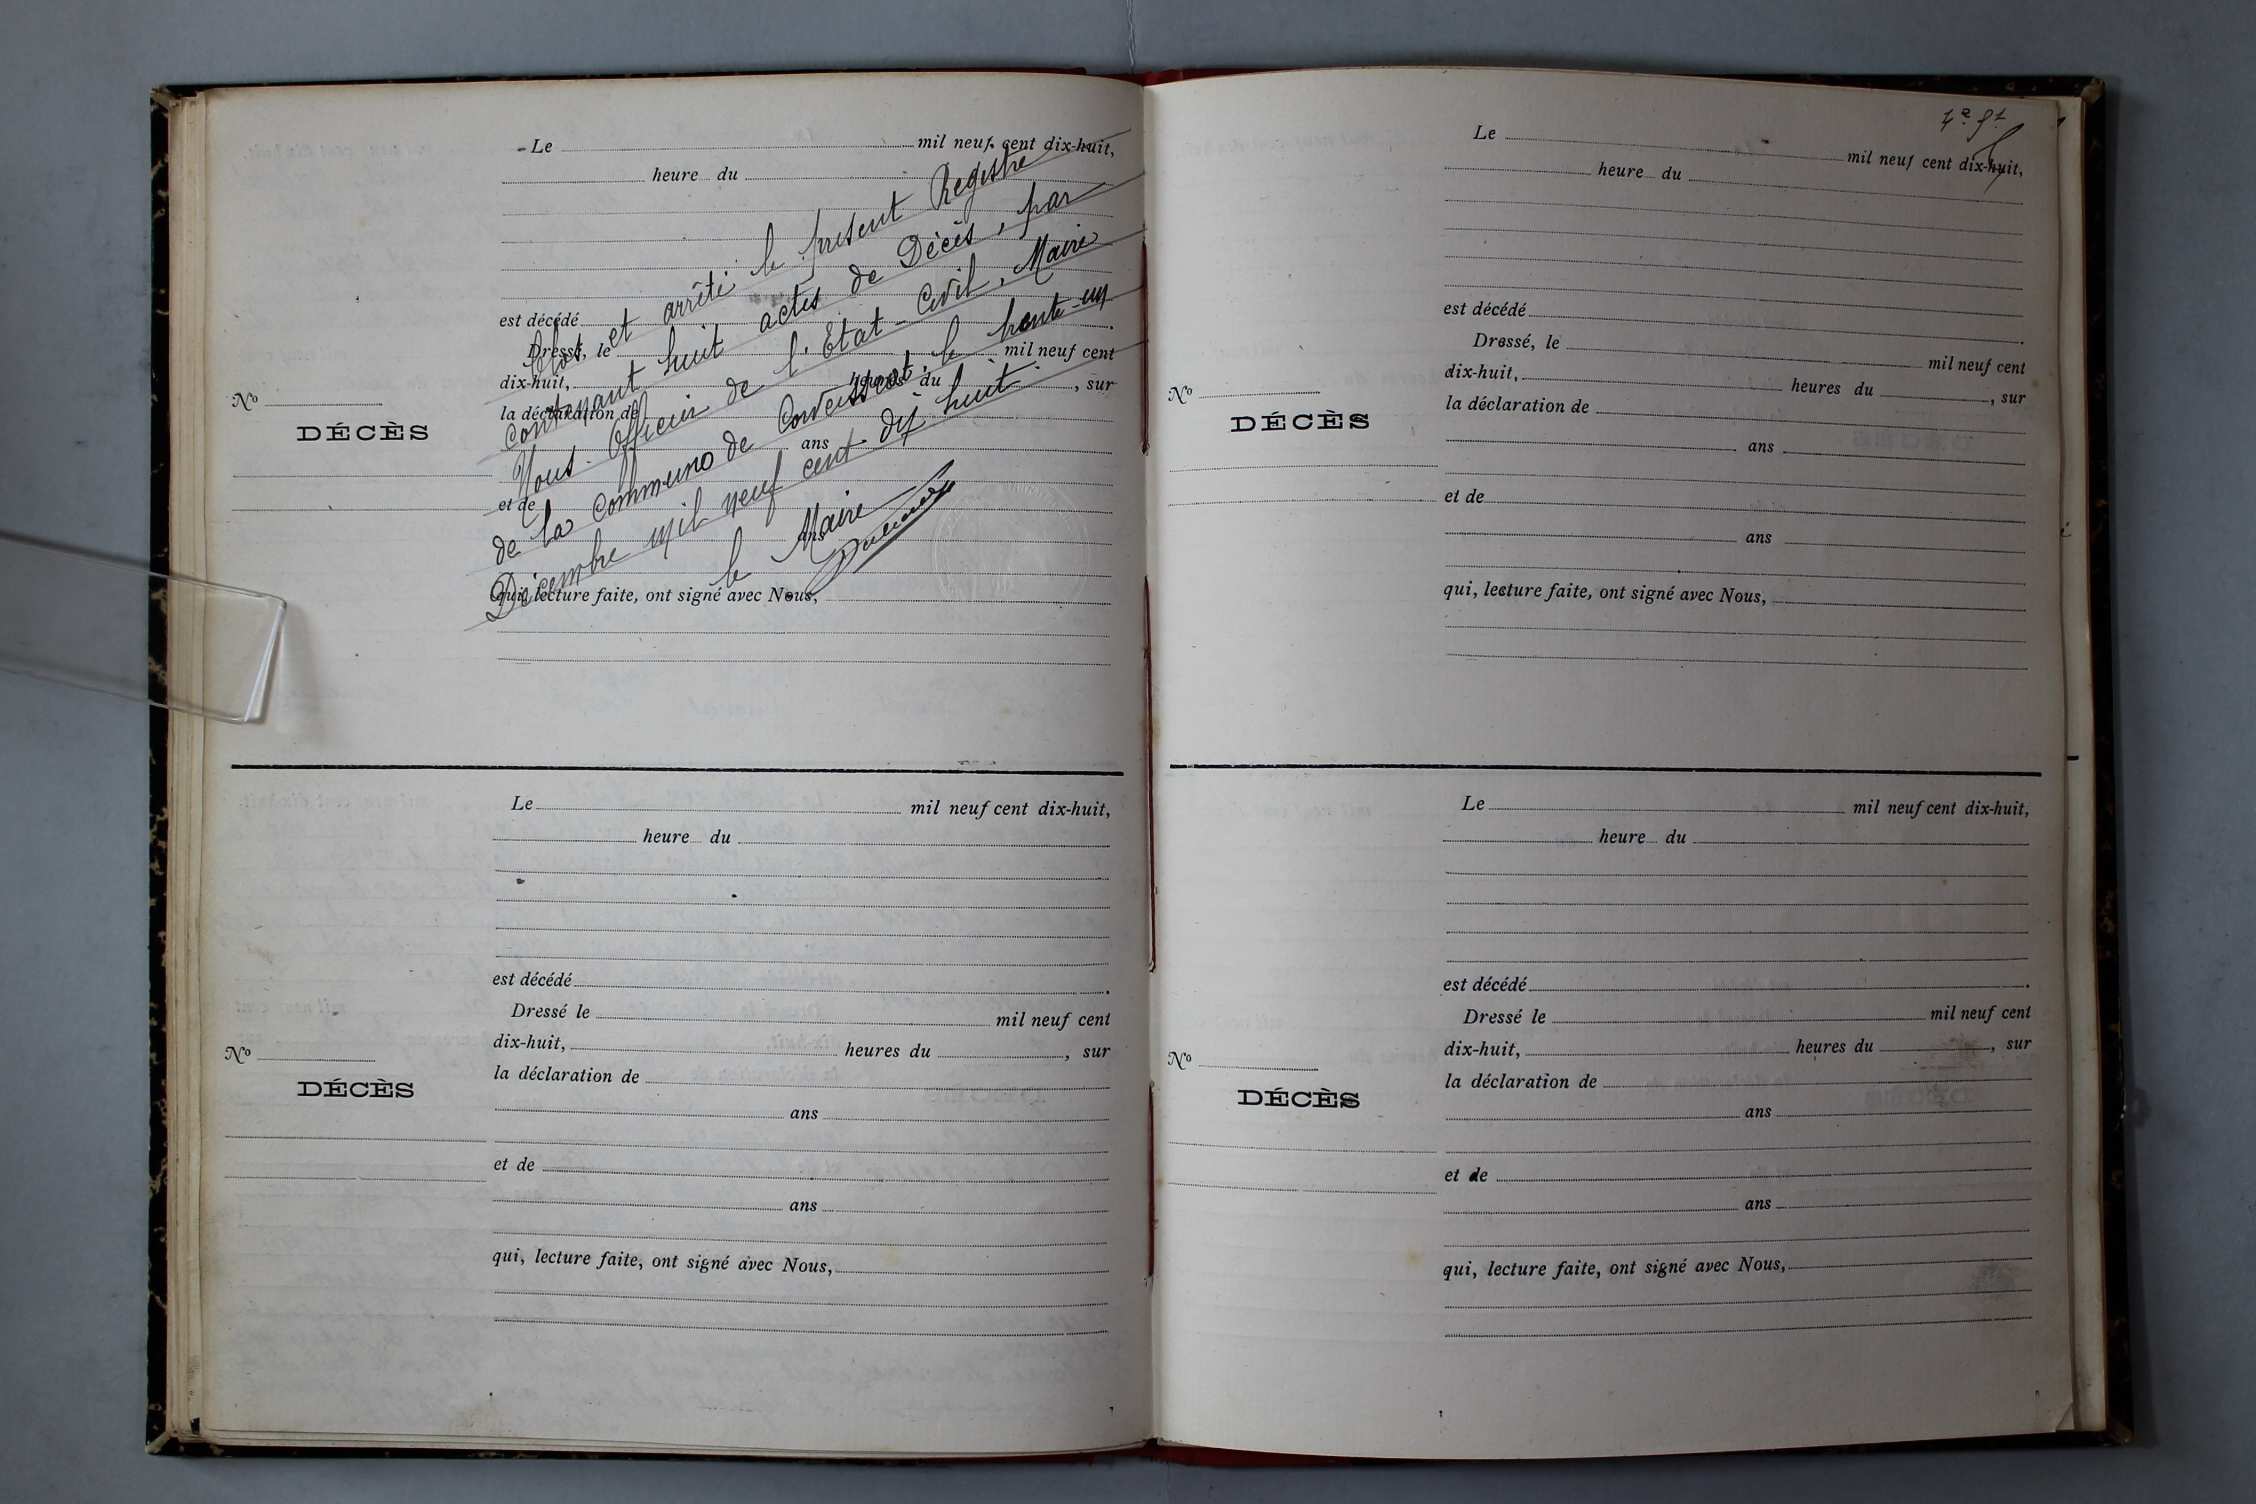 Le mil neuf cent dix-huit,
heure du
est décédé
Dressé, le mil neuf cent
dix-huit, heures du , sur
la déclaration de
ans
et de
ans
qui, lecture faite, ont signé avec Nous,
Nº
DÉCÈS
Clos et arrêté le present Registre
Contenant huit actes de Décès, par
Nous Officier de l'Etat-Civil, Maire
de la Commune de le trente-un
Décembre mil neuf cent dix huit.
le Maire
Le mil neuf cent dix-huit,
heure du
est décédé
Dressé le mil neuf cent
dix-huit, heures du , sur
la déclaration de
ans
et de
ans
qui, lecture faite, ont signé avec Nous,
Nº
DÉCÈS
Le mil neuf cent dix-huit,
heure du
est décédé
Dressé, le mil neuf cent
dix-huit, heures du , sur
la déclaration de
ans
et de
ans
qui, lecture faite, ont signé avec Nous,
Nº
DÉCÈS
Le mil neuf cent dix-huit,
heure du
est décédé
Dressé le mil neuf cent
dix-huit, heures du , sur
la déclaration de
ans
et de
ans
qui, lecture faite, ont signé avec Nous,
Nº
DÉCÈS